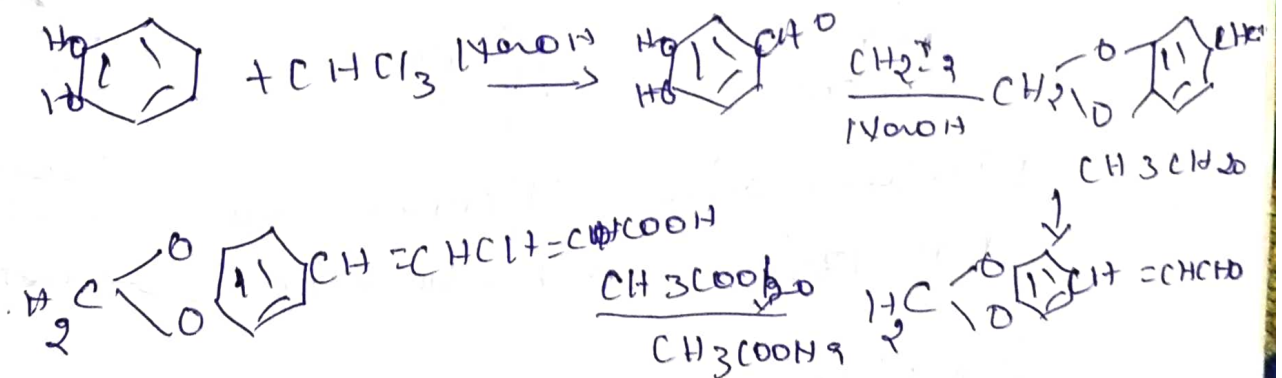 HO HO + CHCl3 NaOH HO HO CHO CH2I2 NaOH CH2 O O CHO
CH3CHO
H2C O O CH=CHCH=CHCOOH CH3COONa H2C O O CH=CHCHO